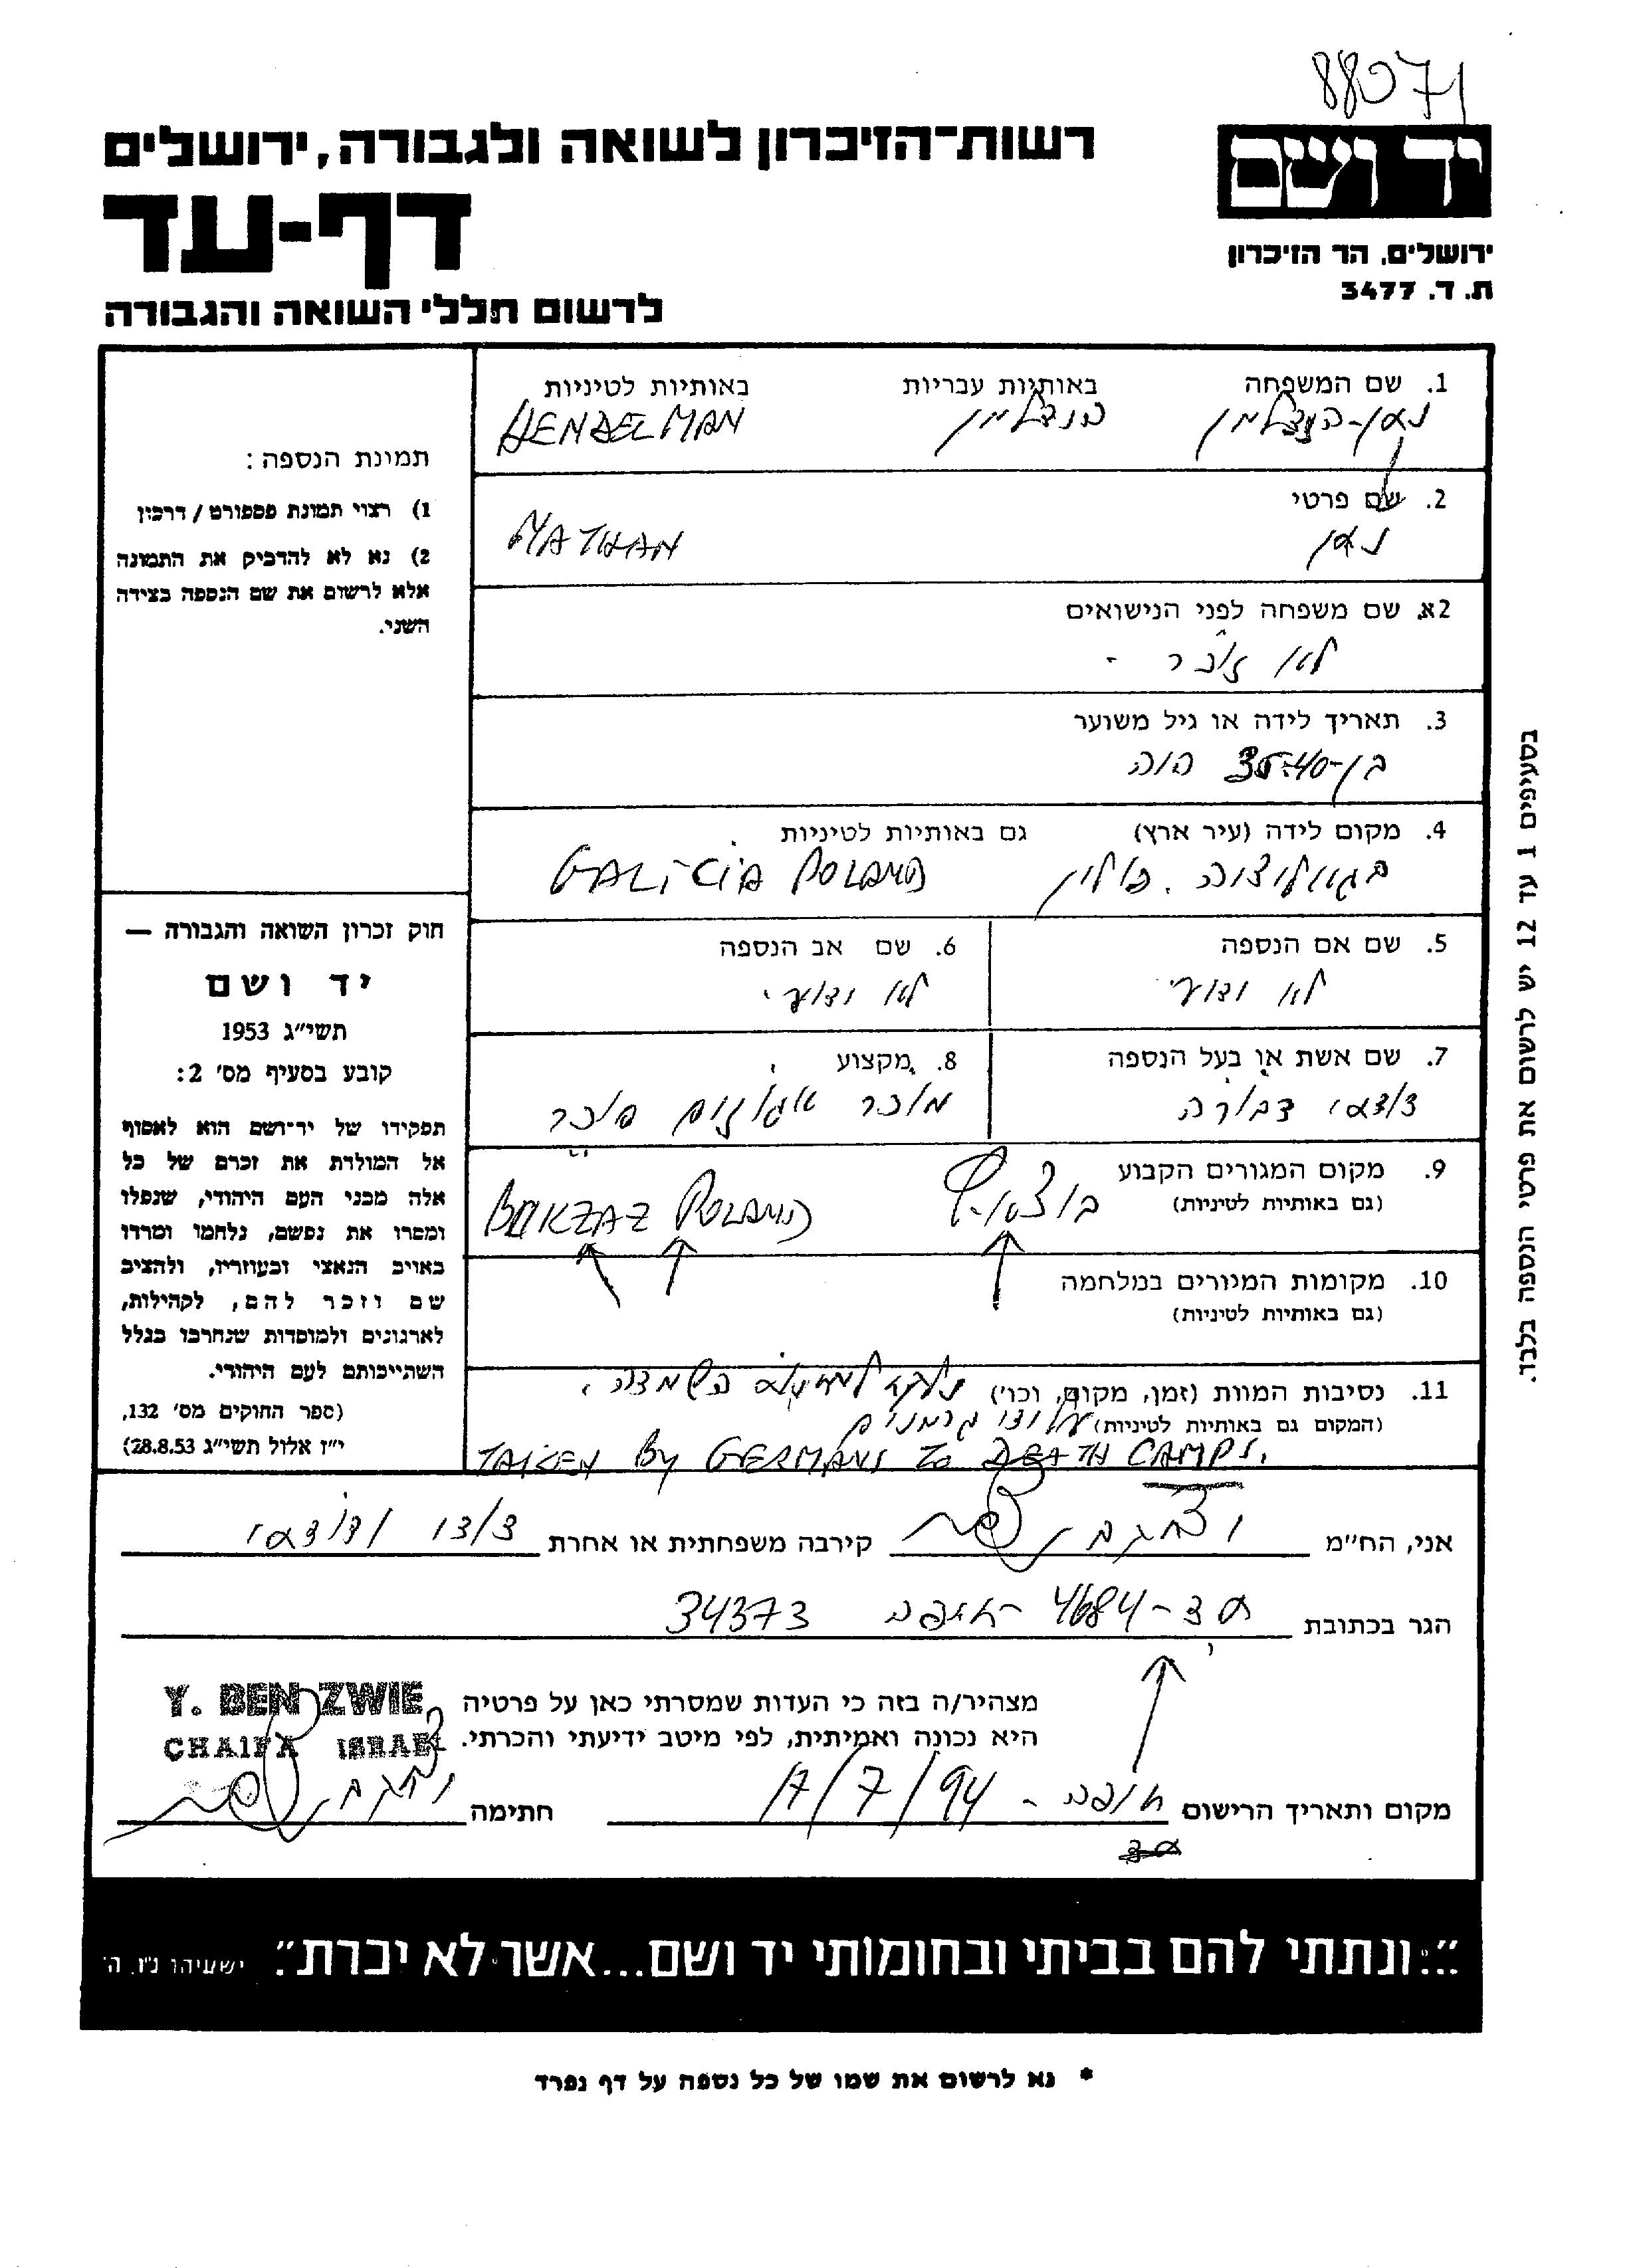 88071
יד ושם
ירושלים, הר הזיכרון
ת. ד. 3477
רשות־הזיכרון לשואה ולגבורה, ירושלים
דף-עד
לרשום חללי השואה והגבורה
1. שם המשפחה באותיות עבריות באותיות לטיניות
הנדלמן HENDELMAN
2. שם פרטי
נתן NATHAN
2א. שם משפחה לפני הנישואים
לא זוכר -
3. תאריך לידה או גיל משוער
בן-35-40 היה
4. מקום לידה (עיר ארץ) גם באותיות לטיניות
בגאליציה. פולין GALICIA POLAND
5. שם אם הנספה
לא ידוע
6. שם אב הנספה
לא ידוע
7. שם אשת או בעל הנספה
דודתי דבורה
8. מקצוע
מוכר
9. מקום המגורים הקבוע
(גם באותיות לטיניות)
POLAND
10. מקומות המגורים במלחמה
(גם באותיות לטיניות)
11. נסיבות המוות (זמן, מקום, וכו') נלקח למחנה השמדה.
(המקום גם באותיות לטיניות) על ידי גרמנים
TAKEN By GERMANS To DEATH CAMPS.
תמונת הנספה:
1) רצוי תמונת פספורט / דרכון
2) נא לא להדביק את התמונה
אלא לרשום את שם הנספה בצידה
השני.
חוק זכרון השואה והגבורה —
יד ושם
תשי״ג 1953
קובע בסעיף מס׳ 2:
תפקידו של יד־ושם הוא לאסוף
אל המולדת את זכרם של כל
אלה מבני העם היהודי, שנפלו
ומסרו את נפשם, נלחמו ומרדו
באויב הנאצי ובעוזריו, ולהציב
שם וזכר להם, לקהילות,
לארגונים ולמוסדות שנחרבו בגלל
השתייכותם לעם היהודי.
(ספר החוקים מס׳ 132,
י״ז אלול תשי״ג 28.8.53)
בסעיפים 1 עד 12 יש לרשום את פרטי הנספה בלבד.
אני, הח״מ קירבה משפחתית או אחרת דודי
הגר בכתובת 4684 - חיפה 34373
מצהיר/ה בזה כי העדות שמסרתי כאן על פרטיה
היא נכונה ואמיתית, לפי מיטב ידיעתי והכרתי.
Y. BEN ZWIE
CHAIFA ISRAEL
מקום ותאריך הרישום חיפה - 17/7/94 חתימה
״...ונתתי להם בביתי ובחומותי יד ושם...אשר לא יכרת״. ישעיהו נ״ו, ה׳
* נא לרשום את שמו של כל נספה על דף נפרד